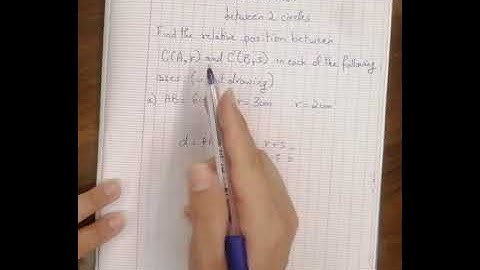 between 2 circles
Find the relative position between
C(A,r) and C'(B,s) in each of the following
cases: (without drawing)
a) AB = 6cm r = 3cm r = 2cm
d = A r+s =